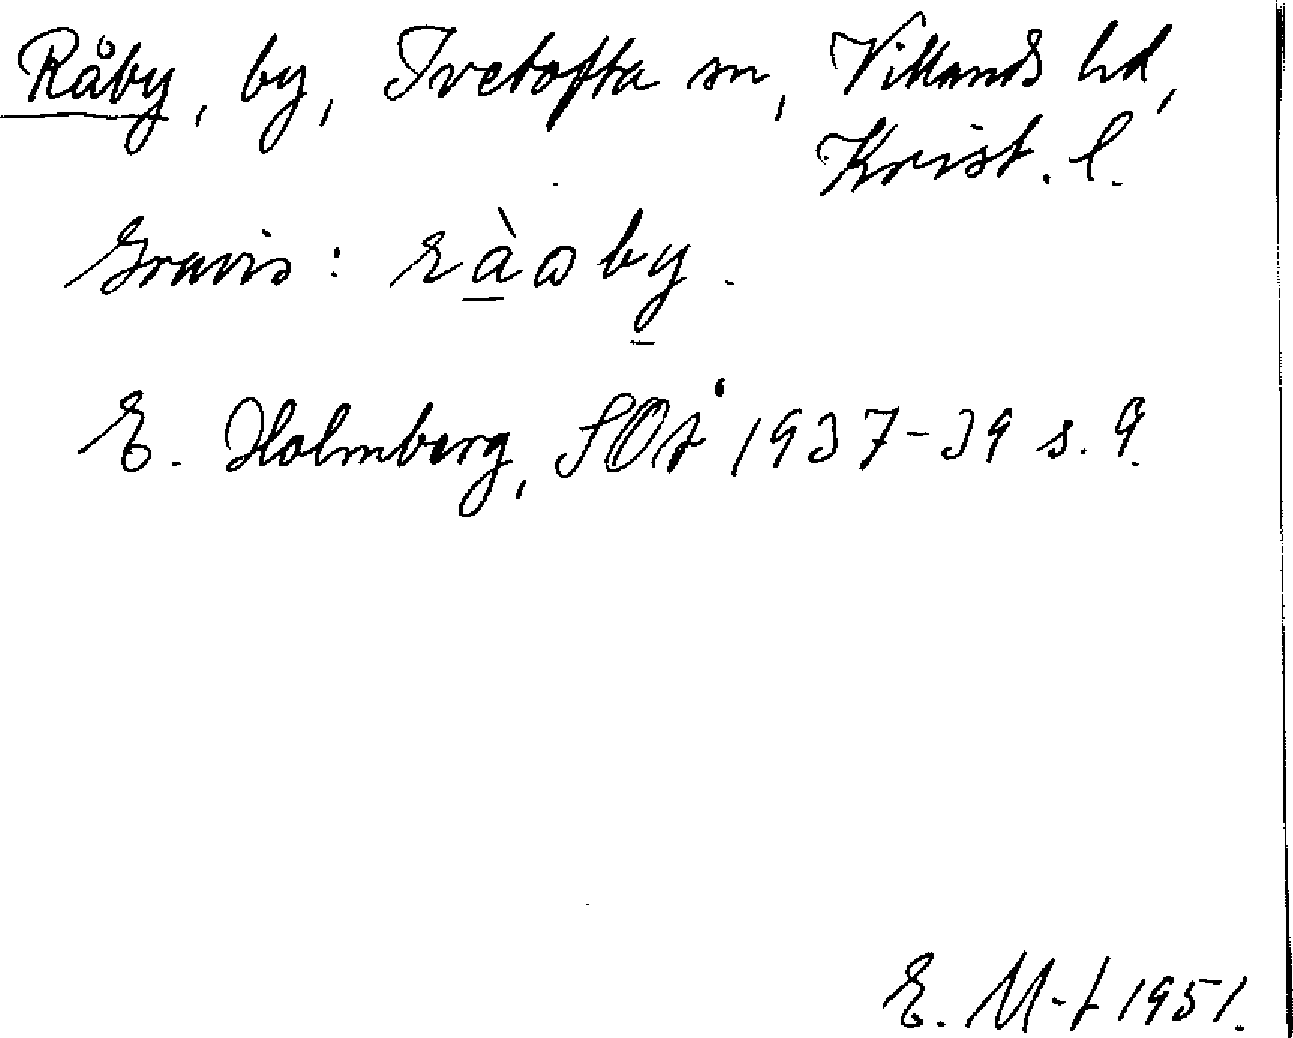 Råby, by, Ivetofta sn, Villands hd,
Krist. l.
Gravis: ràɷby.
E. Holmberg, SOÅ 1937-39 s. 9.
E. M-t 1951.